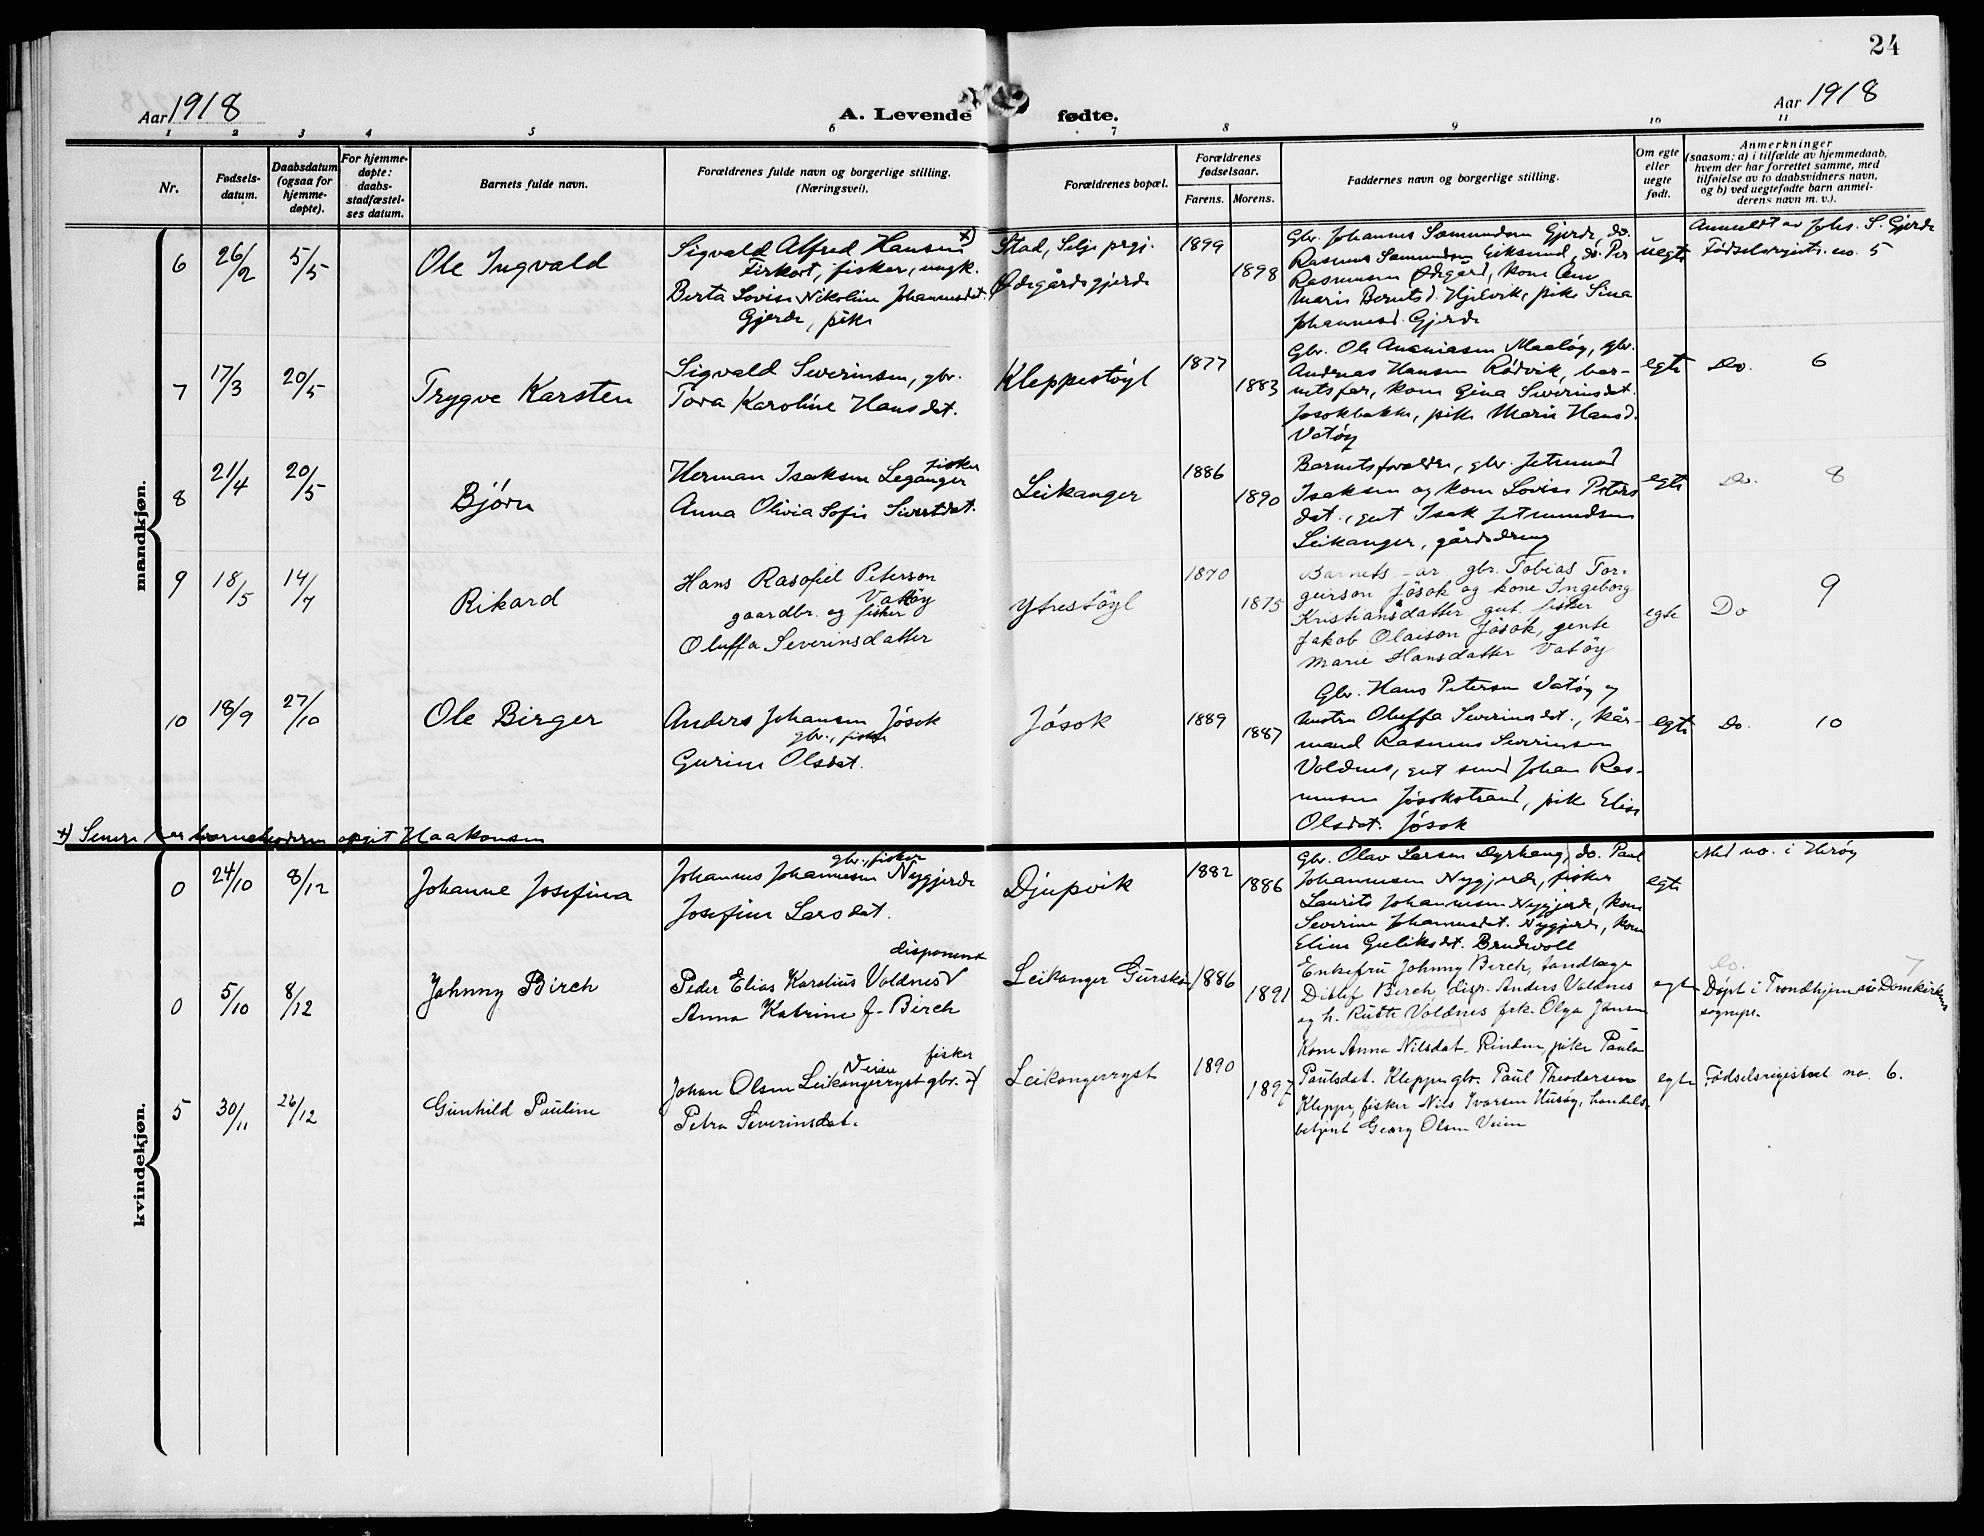 24
Aar 1918
A. Levende fødte.
Aar 1918
1 2 3 4 5 6 7 8 9 10 11
Nr.
Fødsels-
datum.
Daabsdatum
(ogsaa for
hjemme-
døpte).
For hjemme-
døpte:
daabs-
stadfæstel-
ses datum.
Barnets fulde navn.
Forældrenes fulde navn og borgerlige stilling.
(Næringsvei).
Forældrenes bopæl.
Forældrenes
fødselsaar.
Farens. Morens.
Faddernes navn og borgerlige stilling.
Om egte
eller
uegte
født.
Anmerkninger
(saasom: a) i tilfælde av hjemmedaab,
hvem der har forrettet samme, med
tilføielse av to daabsvidners navn,
og b) ved uegtefødte barn anmel-
derens navn m. v.).
mandkjøn.
6 26/2 5/5 Ole Ingvald
Sigvald Alfred Hansen x)
fisker, ungk.
Berta Lovise Nikoline Johannesdat.
Gjerde, pike
Stad, Selje prgj.
Ødegårdsgjerde
1899 1898
Gbr. Johannes Samundsen Gjerde, do.
Rasmus Samundsen Eiksund, do. Per
Rasmussen Ødegård, kone Ane
Marie Berntsd. Hjelvik, pike Sina
Johannesd. Gjerde
uegte
Anmeldt av Johs. S. Gjerde
Fødselsregistr. no. 5
7 17/3 20/5 Trygve Karsten
Sigvald Severinsen, gbr.
Tora Karoline Hansdat.
Kleppestøyl
1877 1883
Gbr. Ole Ananiasen Maaløy, gbr.
Andreas Hansen Rødvik, bar-
netsfar, kone Gina Severinsdat.
Jøsokbakke, pike Marie Hansd.
Vatøy
egte Do. 6
8 21/4 20/5 Bjørn
Herman Isaksen Leganger fisker
Anna Olivia Sofie Sivertdat.
Leikanger
1886 1890
Barnetsforældre, gbr. Jetmund
Isaksen og kone Lovise Peters
dat., gut Isak Jetmundsen
Leikanger, gårdsdreng
egte Do. 8
9 18/5 14/7 Rikard
Hans Rasofiel Peterson
Vatøy
gaardbr. og fisker
Oluffa Severinsdatter
Ytrestøyl
1870 1875
Barnets far gbr. Tobias Tor-
geirson Jøsok og kone Ingeborg
Kristiansdatter gut. fisker
Jakob Olaison Jøsok, gente
Marie Hansdatter Vatøy
egte Do 9
10 18/9 27/10 Ole Birger
Anders Johansen Jøsok
gbr., fisker
Gurine Olsdat.
Jøsok
1889 1887
Gbr. Hans Petersen Vatøy og
hustru Oluffa Severinsdat., kår-
mand Rasmus Severinsen
Voldnes, gut smed Johan Ras-
mussen Jøsokstrand, pike Elise
Olsdat. Jøsok
egte Do. 10
x) Senere er opgit Haakonsen
kvindekjøn.
0 24/10 8/12 Johanne Josefina
gbr., fisker
Johannes Johannesen Nygjerde
Josefine Larsdat.
Djupvik
1882 1886
Gbr. Olav Larsen Dyrhaug, do. Paul
Johannesen Nygjerde, fisker
Laurits Johannesen Nygjerde, kone
Severine Johannesdat. Nygjerde, kone
Eline Guliksdt. Brudevoll
egte
Med no. i Herøy
0 5/10 8/12 Johnny Birch
disponent
Peder Elias Karolius Voldnes
Anna Katrine f. Birch
Leikanger Gurskø
1886 1891
Enkefru Johnny Birch, tandlæge
Ditlef Birch, disp. Anders Voldnes
og h. Ruth Voldnes frk. Olga Jansen
egte
Do. 7
Døpt i Trondhjem Domkirkens
sognepr.
5 30/11 26/12 Gunhild Pauline
Veien fisker
Johan Olsen Leikangerryst gbr. of
Petra Severinsdat.
Leikangerryst
1890 1897
Kone Anna Nilsdat. Rinden pike Paula
Paulsdat. Kleppe gbr. Paul Theodorsen
Kleppe, fisker Nils Ivarsen Husøy, handels-
betjent Georg Olsen Veien
egte
Fødselsregisteret no. 6.